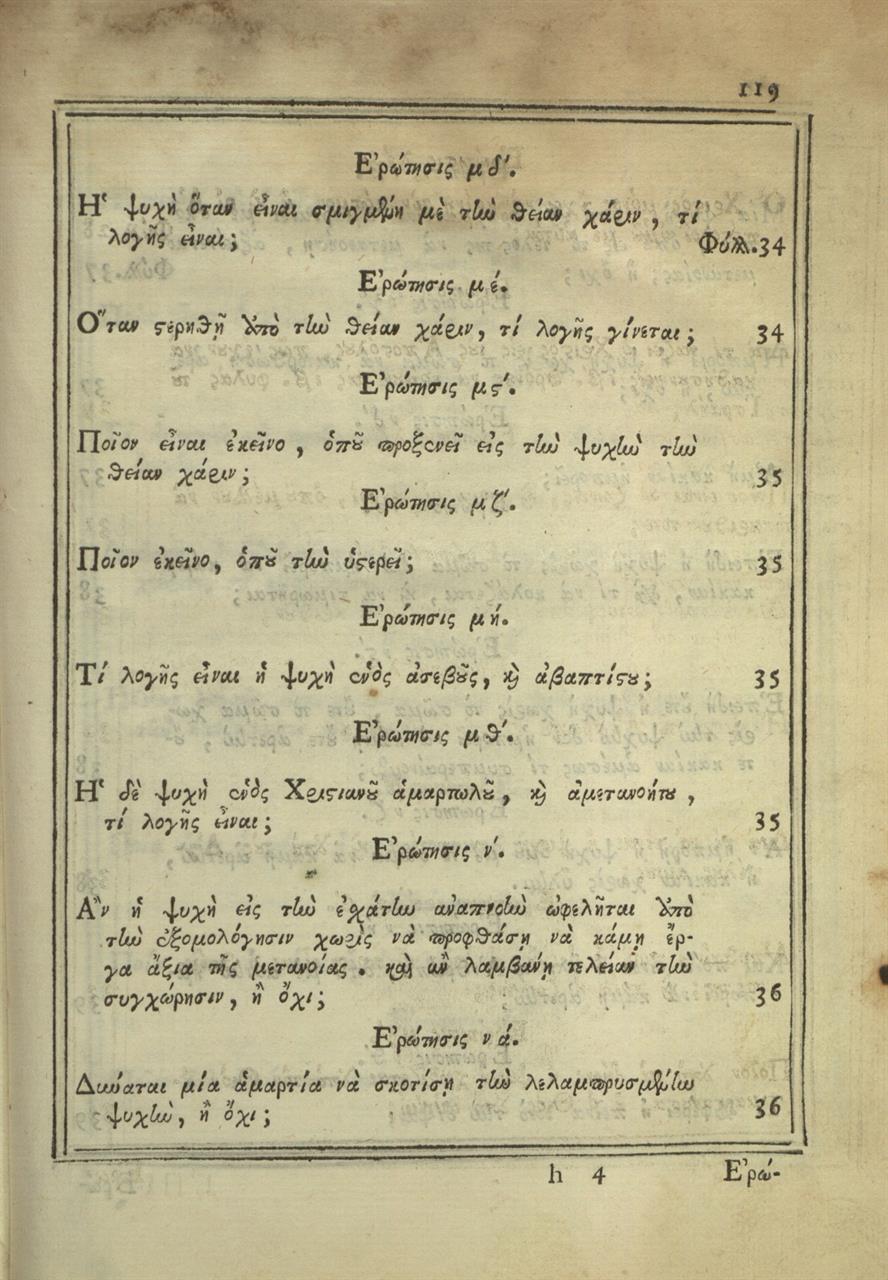 119
Ἐρώτησις μδʹ.
Ἡ ψυχὴ ὅταν εἶναι σμιγμένη μὲ τὴν θείαν χάριν, τί
λογῆς εἶναι; Φύλλ.34
Ἐρώτησις μέ.
Ὅταν ϛερηθῇ ἀπὸ τὴν θείαν χάριν, τί λογῆς γίνεται; 34
Ἐρώτησις μϛʹ.
Ποῖον εἶναι ἐκεῖνο, ὁποῦ προξενεῖ εἰς τὴν ψυχὴν τὴν
θείαν χάριν; 35
Ἐρώτησις μζʹ.
Ποῖον ἐκεῖνο, ὁποῦ τὴν ὑϛερεῖ; 35
Ἐρώτησις μή.
Τί λογῆς εἶναι ἡ ψυχὴ ἑνὸς ἀσεβοῦς, καὶ ἀβαπτίϛου; 35
Ἐρώτησις μθʹ.
Ἡ δὲ ψυχὴ ἑνὸς Χριϛιανοῦ ἁμαρτωλοῦ, καὶ ἀμετανοήτου,
τί λογῆς εἶναι; 35
Ἐρώτησις νʹ.
Ἂν ἡ ψυχὴ εἰς τὴν ἐχάτην ἀναπνοὴν ὠφελῆται ἀπὸ
τὴν ἐξομολόγησιν χωρὶς νὰ προφθάσῃ νὰ κάμῃ ἔρ-
γα ἄξια τῆς μετανοίας. καὶ ἂν λαμβανῃ τελείαν τὴν
συγχώρησιν, ἢ ὄχι; 36
Ἐρώτησις νά.
Δύναται μία ἁμαρτία νὰ σκοτίσῃ τὴν λελαμπρυσμένην
ψυχὴν, ἢ ὄχι; 36
h 4 Ἐρώ-